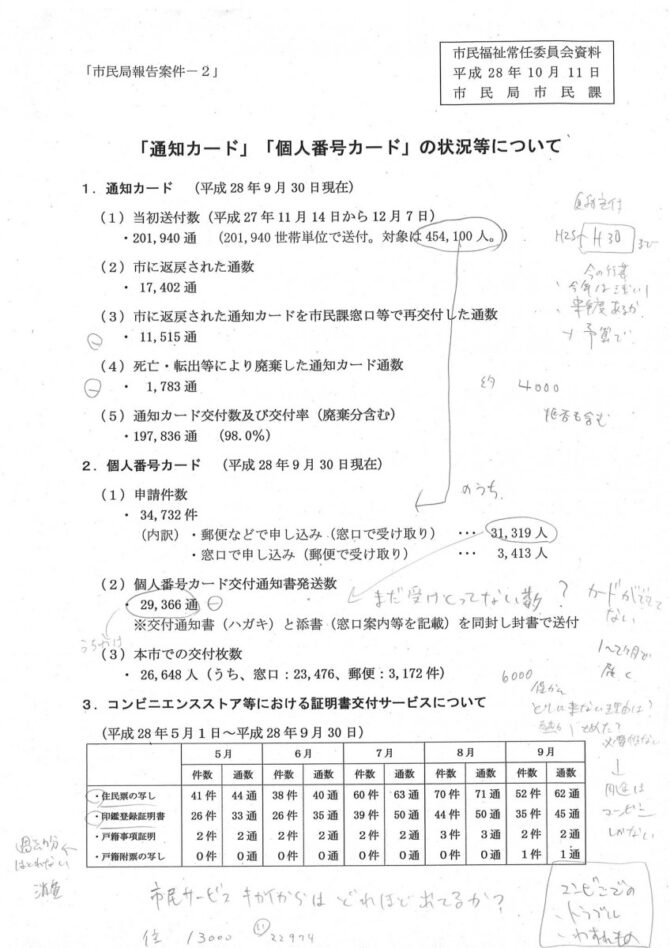 「市民局報告案件－２」
市民福祉常任委員会資料
平成 28 年 10 月 11 日
市 民 局 市 民 課
「通知カード」「個人番号カード」の状況等について
１．通知カード　（平成 28 年 9 月 30 日現在）
（１）当初送付数（平成 27 年 11 月 14 日から 12 月 7 日）
・201,940 通　（201,940 世帯単位で送付。対象は 454,100 人。）
H30
（２）市に返戻された通数
・17,402 通
（３）市に返戻された通知カードを市民課窓口等で再交付した通数
・11,515 通
予算で
（４）死亡・転出等により廃棄した通知カード通数
・ 1,783 通
約 4000
拒否も含む
（５）通知カード交付数及び交付率（廃棄分含む）
・197,836 通（98.0％）
２．個人番号カード　（平成 28 年 9 月 30 日現在）
（１）申請件数
のうち、
・34,732 件
（内訳）・郵便などで申し込み（窓口で受け取り）　…　31,319 人
・窓口で申し込み（郵便で受け取り）　…　3,413 人
（２）個人番号カード交付通知書発送数
まだ受けとってない数？
カードができてない
・29,366 通
※交付通知書（ハガキ）と添書（窓口案内等を記載）を同封し封書で送付
1〜2ヶ月で
届く
（３）本市での交付枚数
・26,648 人（うち、窓口：23,476、郵便：3,172 件）
6000
３．コンビニエンスストア等における証明書交付サービスについて
（平成 28 年 5 月 1 日～平成 28 年 9 月 30 日）
5 月　6 月　7 月　8 月　9 月
件数　通数　件数　通数　件数　通数　件数　通数　件数　通数
・住民票の写し　41 件　44 通　38 件　40 通　60 件　63 通　70 件　71 通　52 件　62 通
・印鑑登録証明書　26 件　33 通　26 件　35 通　39 件　50 通　44 件　50 通　35 件　45 通
・戸籍事項証明　2 件　2 通　2 件　2 通　2 件　2 通　3 件　3 通　2 件　2 通
・戸籍附票の写し　0 件　0 通　0 件　0 通　0 件　0 通　0 件　0 通　1 件　1 通
用途は
コンビニ
しかない
過去の分
はとれない
市民サービス キカイからは どれほど出てるか？
住 13000
22974
コンビニでの
トラブル
わすれもの